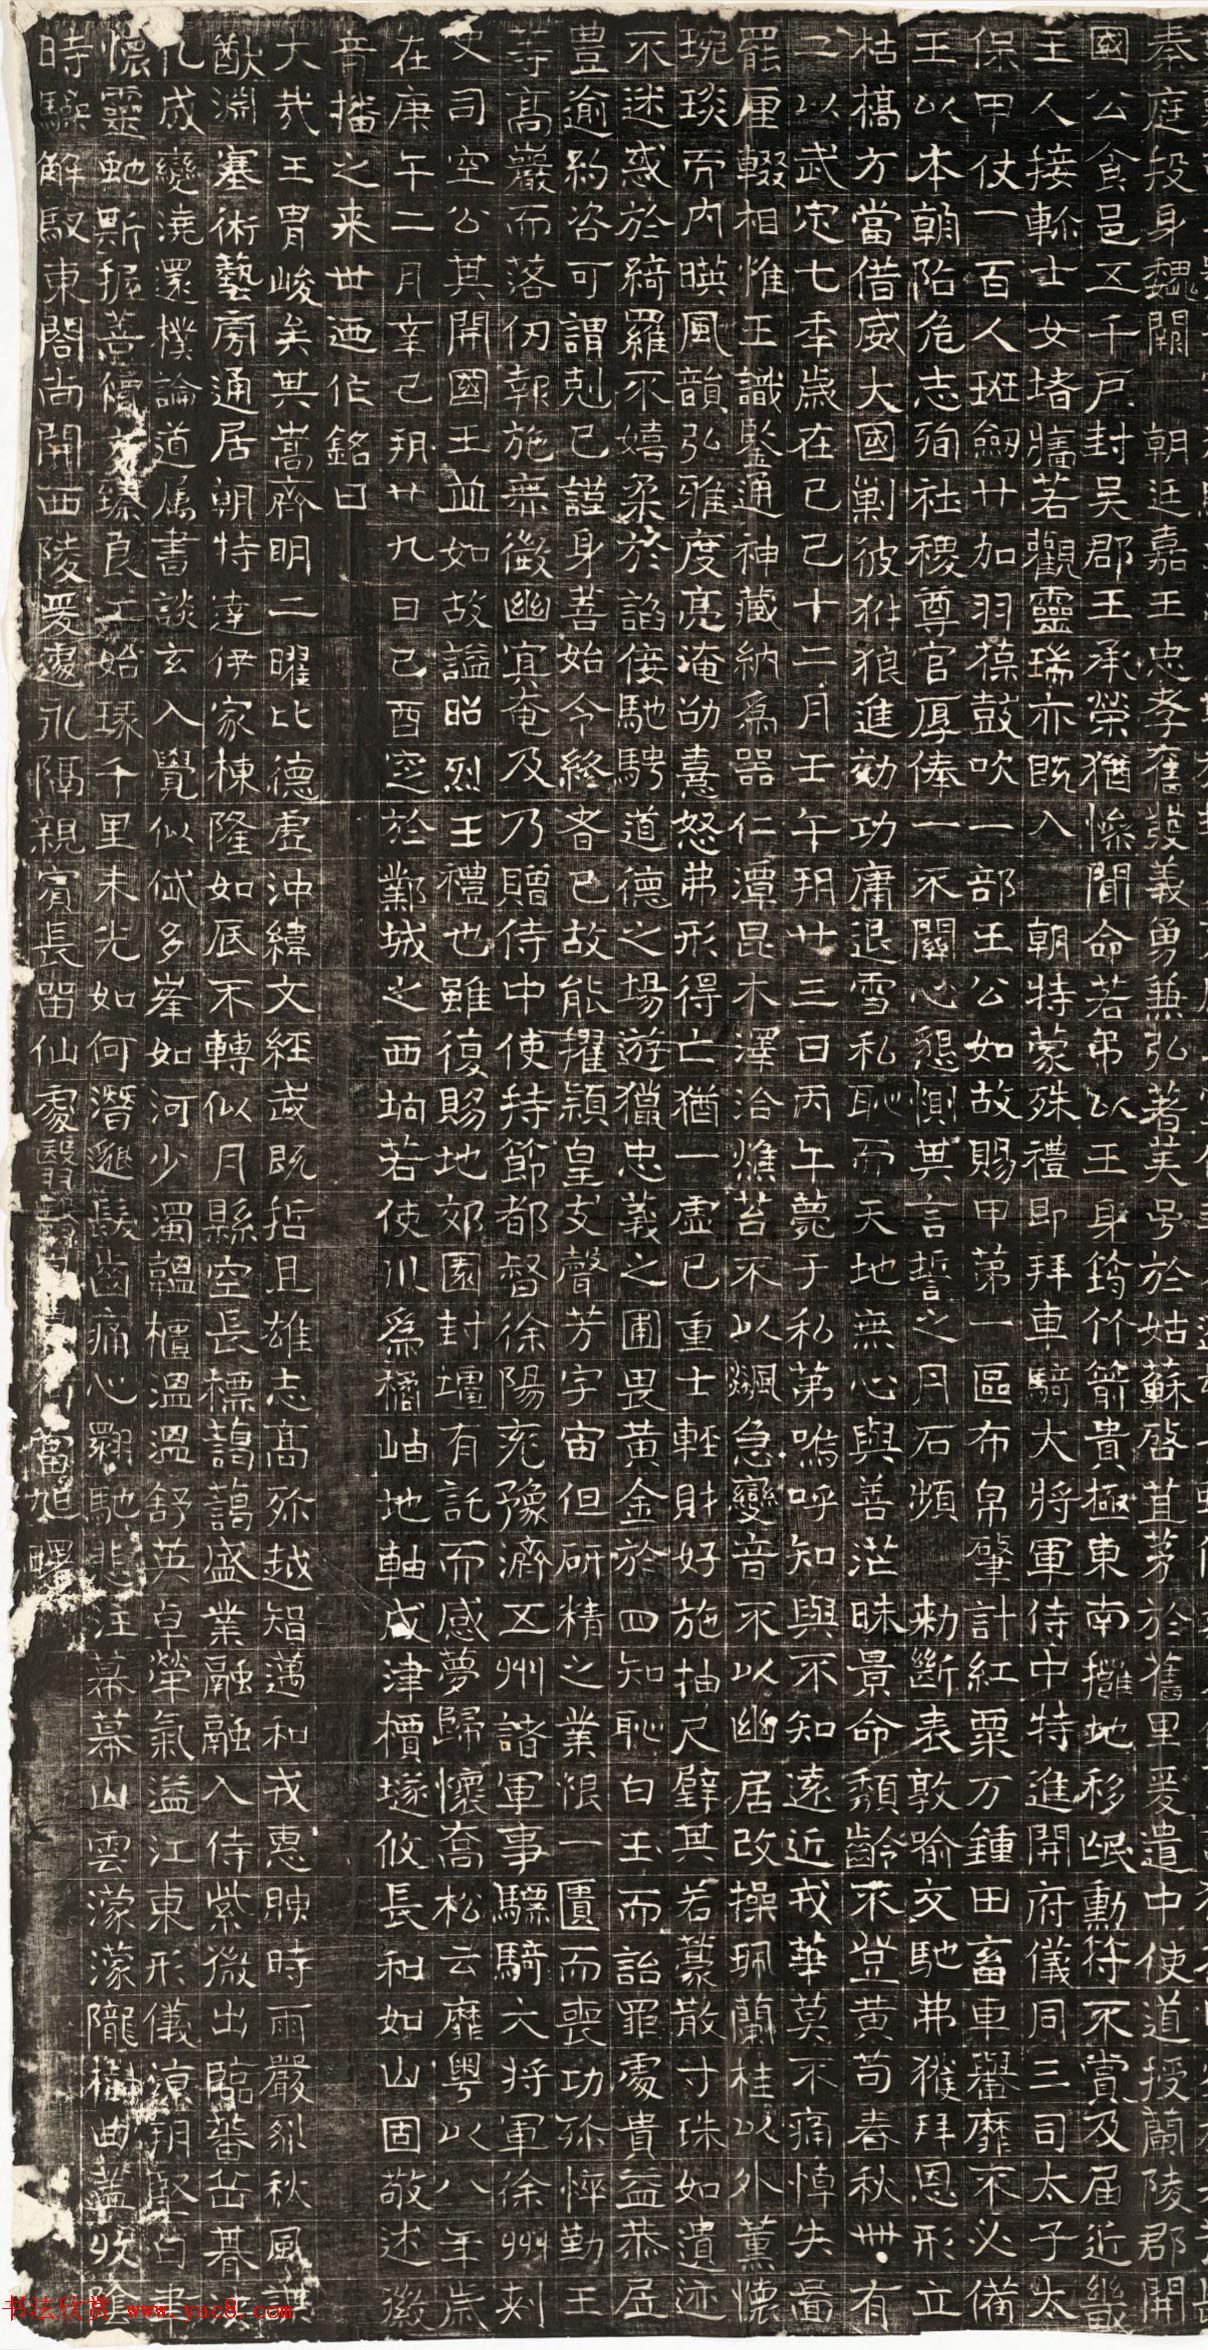 奉庭投身魏闕　朝廷嘉王忠孝舊發義勇兼弘著美号於姑蘇啓苴茅於舊里爰遣中使道授蘭陵郡開
國公食邑五千戶封吴郡王承榮猶慘聞命若弔以王身筠竹箭貴極東南攤地移岷勳符不賞及届近畿
王人接軫士女堵牆若觀靈瑞亦既入　朝特蒙殊禮即拜車騎大將軍侍中特進開府儀同三司太子太
保甲仗一百人班劒廿加羽葆鼓吹一部王公如故賜甲第一區布帛肇計紅粟万鍾田畜車轝靡不必備
王以本朝阽危志殉社稷尊官厚俸一不關心懇惻其言誓之丹石頻　勑斷表敦喻交馳弗獲拜恩形立
枯槁方當借威大國剿彼犲狼進効功庸退雪私恥而天地無心與善茫昧景命頹齡不登黄苟春秋卌有
二以武定七季歲在己巳十二月壬午朔廿三日丙午薨于私第嗚呼知與不知遠近戎華莫不痛悼失啚
罷厘輟相惟王識鑒通神藏納爲器仁潭昆木澤洽燋苔不以颯急變音不以幽居改操珮蘭桂以外薰懷
琬琰而内暎風韻弘雅度亮淹劭憙怒弗形得亡猶一虚己重士輕財好施抽尺璧其若蒙散寸珠如遺迹
不迷惑於綺羅不嬉柔於諂佞馳騁道德之場遊獵忠義之圃畏黄金於四知恥白玉而詒罪處貴益恭居
豊逾約咨可謂剋己謹身善始令終者已故能擢穎皇支聲芳宇宙但研精之業恨一匱而喪功弥悴勤王
等高巖而落仞報施無徵幽冥奄及乃贈侍中使持節都督徐陽兖豫濟五州諸軍事驃騎大將軍徐州刺
史司空公其開國王並如故謚昭烈王禮也雖復賜地郊園封壇有託而感夢歸懷喬松云靡粤以八年歲
在庚午二月辛巳朔廿九日己酉窆於鄴城之西垧若使川爲橋岫地軸成津櫝墜攸長和如山固敬述徽
音播之来世迺作銘曰
大哉王胄峻矣其嵩齊明二曜比德虚沖緯文經武既哲且雄志高弥越智邁和戎惠敶時雨嚴烈秋風
猷淵塞術藝旁通居朝特達伊家棟隆如辰不轉似月縣空長標藹藹盛業融融入侍紫微出臨蕃岳朞
化成變澆還樸論道属書談玄入覺似岱多峯如河少濁韞櫝温温舒英卓犖氣溢江東形儀涼朔堅白
懷靈虵斯握善價臻良工始琢千里未光如何潜邈髮齒痛心翻馳悲汪幕幕山雲濛濛隴樹曲盖收陰
時驂解馭東閣尚開西陵爰處永隔親賓長留仙處翳當旭曙
书法欣赏 www.yac8.com